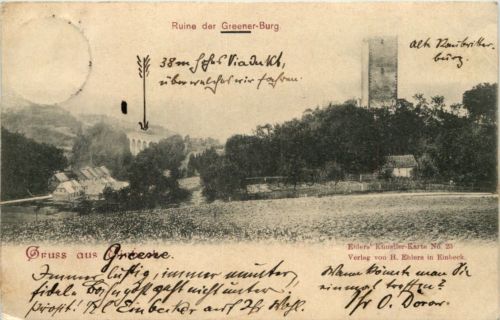 Ruine der Greener-Burg.
38m hohes Viadukt,
über welches wir fahren.
Alte Raubritter-
burg.
Gruss aus Greene
Ehlers' Künstler-Karte No. 25
Verlag von H. Ehlers in Einbeck.
Immer lustig, immer munter,
fidele geht nicht unter!
Prosit! Einbecker auf Ihr Wohl.
Wann könnst man Sie
einmal treffen?